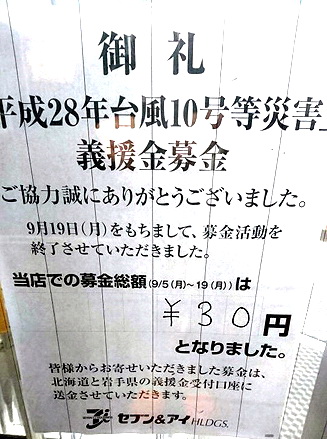 御 礼
平成28年台風10号等災害
義援金募金
ご協力誠にありがとうございました。
9月19日(月)をもちまして、募金活動を
終了させていただきました。
当店での募金総額(9/5(月)~19(月))は
￥30円
となりました。
皆様からお寄せいただきました募金は、
北海道と岩手県の義援金受付口座に
送金させていただきます。
セブン&アイHLDGS.